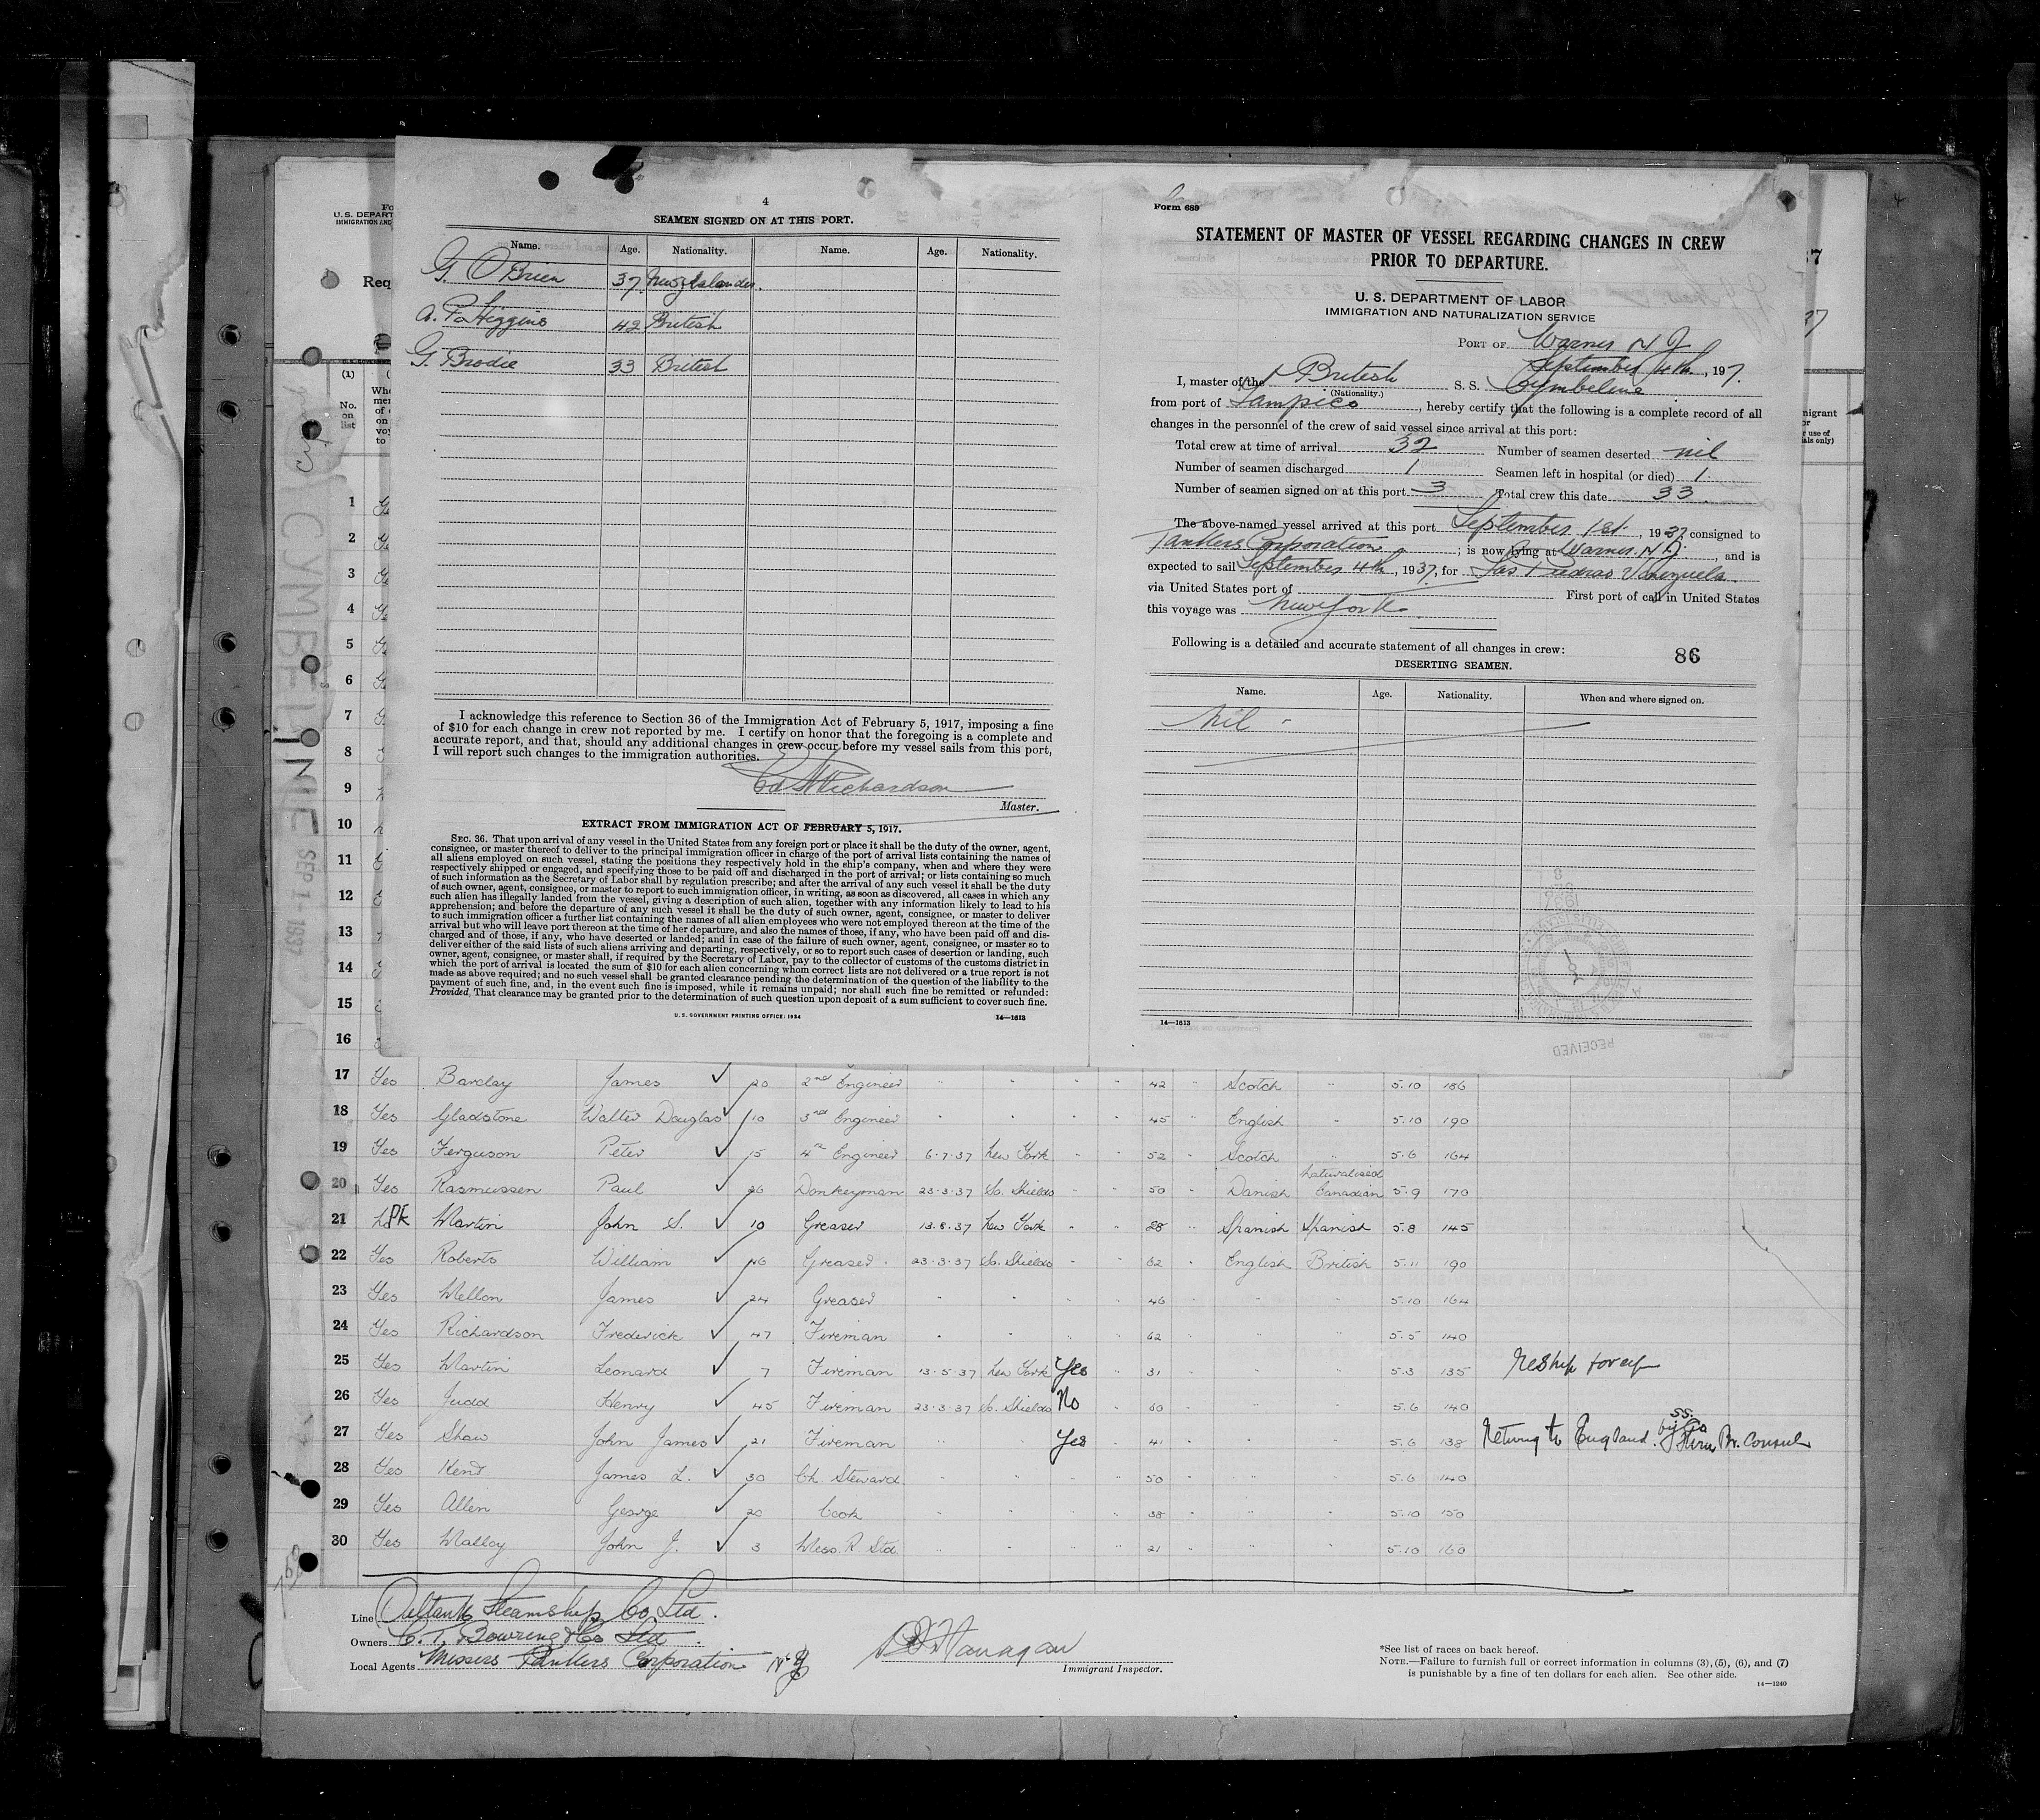 4
SEAMEN SIGNED ON AT THIS PORT.
Name. Age. Nationality. Name. Age. Nationality.
G. O Brien 37 New Zealander.
A. P. Higgins 42 British
G. Brodie 33 British
I acknowledge this reference to Section 36 of the Immigration Act of February 5, 1917, imposing a fine
of $10 for each change in crew not reported by me. I certify on honor that the foregoing is a complete and
accurate report, and that, should any additional changes in crew occur before my vessel sails from this port,
I will report such changes to the immigration authorities.
Richardson
Master.
EXTRACT FROM IMMIGRATION ACT OF FEBRUARY 5, 1917.
SEC. 36. That upon arrival of any vessel in the United States from any foreign port or place it shall be the duty of the owner, agent,
consignee, or master thereof to deliver to the principal immigration officer in charge of the port of arrival lists containing the names of
all aliens employed on such vessel, stating the positions they respectively hold in the ship's company, when and where they were
respectively shipped or engaged, and specifying those to be paid off and discharged in the port of arrival; or lists containing so much
of such information as the Secretary of Labor shall by regulation prescribe; and after the arrival of any such vessel it shall be the duty
of such owner, agent, consignee, or master to report to such immigration officer, in writing, as soon as discovered, all cases in which any
such alien has illegally landed from the vessel, giving a description of such alien, together with any information likely to lead to his
apprehension; and before the departure of any such vessel it shall be the duty of such owner, agent, consignee, or master to deliver
to such immigration officer a further list containing the names of all alien employees who were not employed thereon at the time of the
arrival but who will leave port thereon at the time of her departure, and also the names of those, if any, who have been paid off and dis-
charged and of those, if any, who have deserted or landed; and in case of the failure of such owner, agent, consignee, or master so to
deliver either of the said lists of such aliens arriving and departing, respectively, or so to report such cases of desertion or landing, such
owner, agent, consignee, or master shall, if required by the Secretary of Labor, pay to the collector of customs of the customs district in
which the port of arrival is located the sum of $10 for each alien concerning whom correct lists are not delivered or a true report is not
made as above required; and no such vessel shall be granted clearance pending the determination of the question of the liability to the
payment of such fine, and, in the event such fine is imposed, while it remains unpaid; nor shall such fine be remitted or refunded:
Provided, That clearance may be granted prior to the determination of such question upon deposit of a sum sufficient to cover such fine.
U. S. GOVERNMENT PRINTING OFFICE: 1934 14—1613
Form 689
STATEMENT OF MASTER OF VESSEL REGARDING CHANGES IN CREW
PRIOR TO DEPARTURE.
U. S. DEPARTMENT OF LABOR
IMMIGRATION AND NATURALIZATION SERVICE
PORT OF Warner N J
September 4th, 197.
I, master of the British S. S. Cymbeline
(Nationality.)
from port of Tampico, hereby certify that the following is a complete record of all
changes in the personnel of the crew of said vessel since arrival at this port:
Total crew at time of arrival 32 Number of seamen deserted nil
Number of seamen discharged 1 Seamen left in hospital (or died) 1
Number of seamen signed on at this port 3 Total crew this date 33
The above-named vessel arrived at this port September 1st, 1937, consigned to
Tankers Corporation; is now lying at Warner N J., and is
expected to sail September 4th, 1937, for Las Piedras Venezuela
via United States port of First port of call in United States
this voyage was New York
Following is a detailed and accurate statement of all changes in crew:
86
DESERTING SEAMEN.
Name. Age. Nationality. When and where signed on.
Nil -
14—1613
RECEIVED
U. S. DEPART
IMMIGRATION AND
Req
(1)
No.
on
list
CYMBELINE SEP 1 - 1937
1
2
3
4
5
6
7
8
9
10
11
12
13
14
15
16
17 Yes Barclay James 20 2nd Engineer " " " " 42 " Scotch " 5.10 186
18 Yes Gladstone Walter Douglas 10 3rd Engineer " " " " 45 " English " 5.10 190
19 Yes Ferguson Peter 15 4th Engineer 6.7.37 New York " " 52 " Scotch " 5.6 164
20 Yes Rasmussen Paul 26 Donkeyman 23.3.37 So. Shields " " 50 " Danish Naturalised Canadian 5.9 170
21 Martin John S. 10 Greaser 13.8.37 New York " " 28 " Spanish Spanish 5.8 145
22 Yes Roberts William 46 Greaser 23.3.37 So. Shields " " 62 " English British 5.11 190
23 Yes Mellon James 24 Greaser " " " " 46 " " " 5.10 164
24 Yes Richardson Frederick 47 Fireman " " " " 62 " " " 5.5 140
25 Yes Martin Leonard 7 Fireman 13.5.37 New York Yes " 31 " " " 5.3 135 Reship foreign
26 Yes Judd Henry 45 Fireman 23.3.37 So. Shields No " 60 " " " 5.6 140
27 Yes Shaw John James 21 Fireman " " Yes " 41 " " " 5.6 138 Returning to England by SS. Br. Consul
28 Yes Kend James L. 30 Ch. Steward " " " " 50 " " " 5.6 140
29 Yes Allen George 20 Cook " " " " 38 " " " 5.10 150
30 Yes Malloy John J. 3 Mess. R. Std. " " " " 21 " " " 5.10 160
Line Oiltank Steamship Co. Ltd.
Owners C. T. Bowring & Co Ltd
Local Agents Messers Tankers Corporation N Y
Flanagan
Immigrant Inspector.
*See list of races on back hereof.
NOTE.—Failure to furnish full or correct information in columns (3), (5), (6), and (7)
is punishable by a fine of ten dollars for each alien. See other side.
14—1240